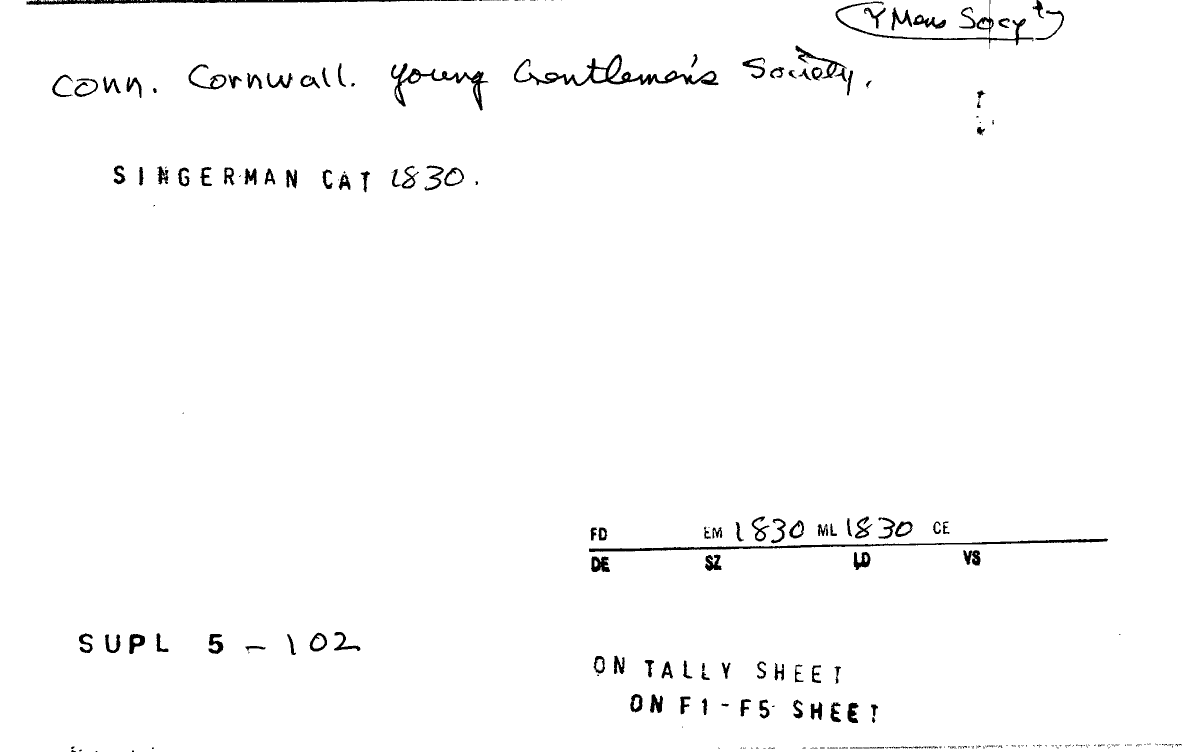 Y Mens Socy ty
Conn. Cornwall. Young Gentlemen's Society.
SINGERMAN CAT 1830.
FD EM 1830 ML 1830 CE
DE SZ LD VS
SUPL 5 - 102
ON TALLY SHEET
ON F1-F5 SHEET